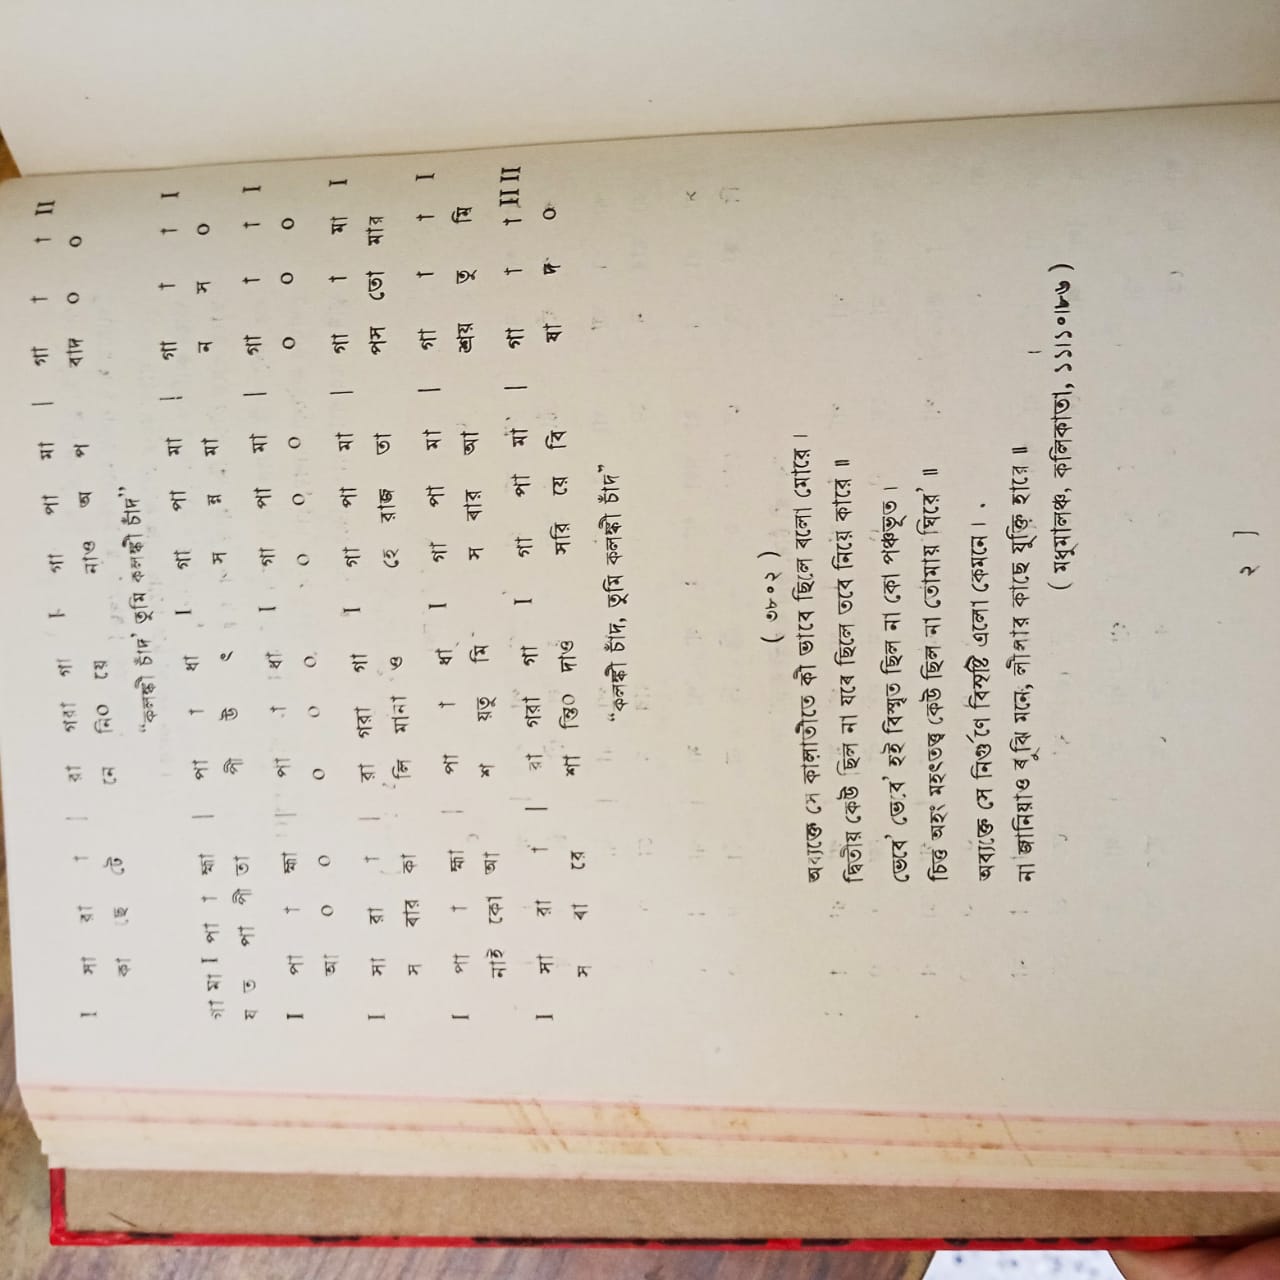 I সা রা া | রা গরা গা I গা পা মা | গা া া II
কা ছে টে নে নি০ য়ে নাও অ প বাদ ০ ০
“কলঙ্কী চাঁদ’ তুমি কলঙ্কী চাঁদ”
গা মা I পা া হ্মা | পা া ধা I গা পা মা | গা া া I
য ত পা পী তা পী উ ৎ স ন্ন মা ন স ০
I পা া হ্মা | পা া ধা I গা পা মা | গা া া I
আ ০ ০ ০ ০ ০ ০ ০ ০ ০ ০ ০
I সা রা া | রা গরা গা I গা পা মা | গা া মা I
স বার কা লি মানা ও হে রাজ তা পস তো মার
I পা া হ্মা | পা া ধা I গা পা মা | গা া া I
নাই কো আ শ য়তু মি স বার আ শ্রয় তু মি
I সা রা া | রা গরা গা I গা পা মা | গা া া II II
স বা রে শা ন্তি০ দাও সরি য়ে বি ষা দ ০
“কলঙ্কী চাঁদ, তুমি কলঙ্কী চাঁদ”
( ৩৮০২ )
অব্যক্তে সে কালাতীতে কী ভাবে ছিলে বলো মোরে।
দ্বিতীয় কেউ ছিল না যবে ছিলে তবে নিয়ে কারে॥
ভেবে’ ভেবে’ হই বিস্মৃত ছিল না কো পঞ্চভূত।
চিত্ত অহং মহৎতত্ত্ব কেউ ছিল না তোমায় ঘিরে’॥
অব্যক্তে সে নির্গুণে বিসৃষ্টি এলো কেমনে।
না জানিয়াও বুঝি মনে, লীলার কাছে যুক্তি হারে॥
( মধুমালঞ্চ, কলিকাতা, ১১।১০।৮৬ )
২ ]